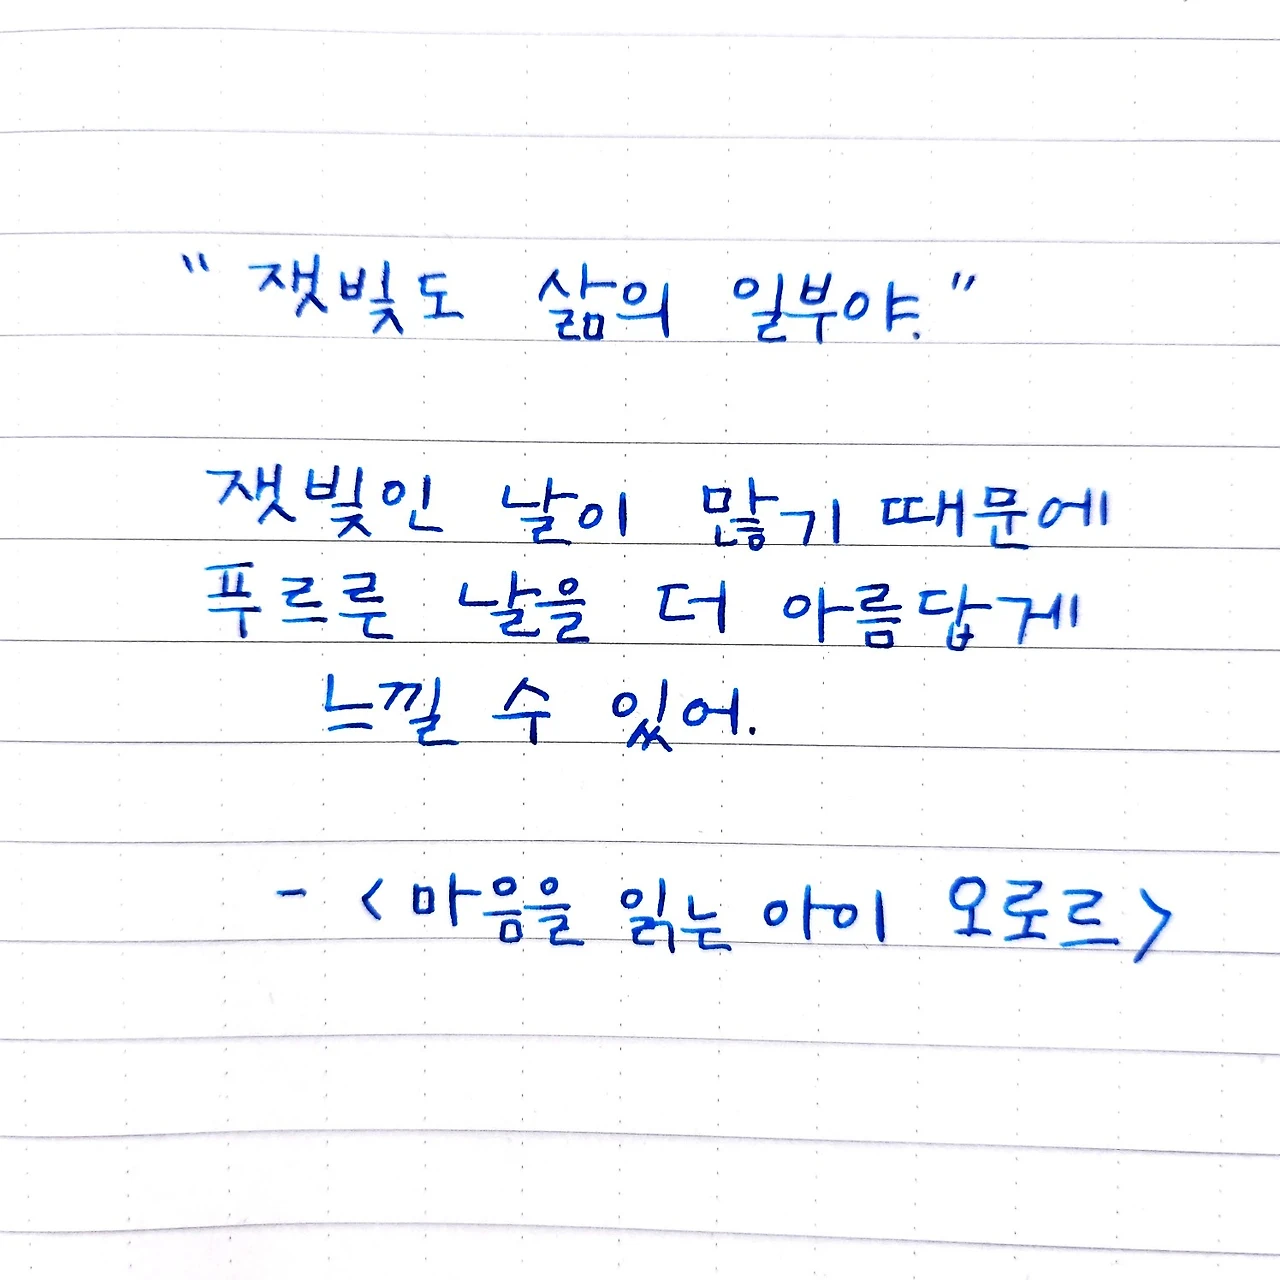 “ 잿빛도 삶의 일부야.”
잿빛인 날이 많기 때문에
푸르른 날을 더 아름답게
느낄 수 있어.
- <마음을 읽는 아이 오로르>